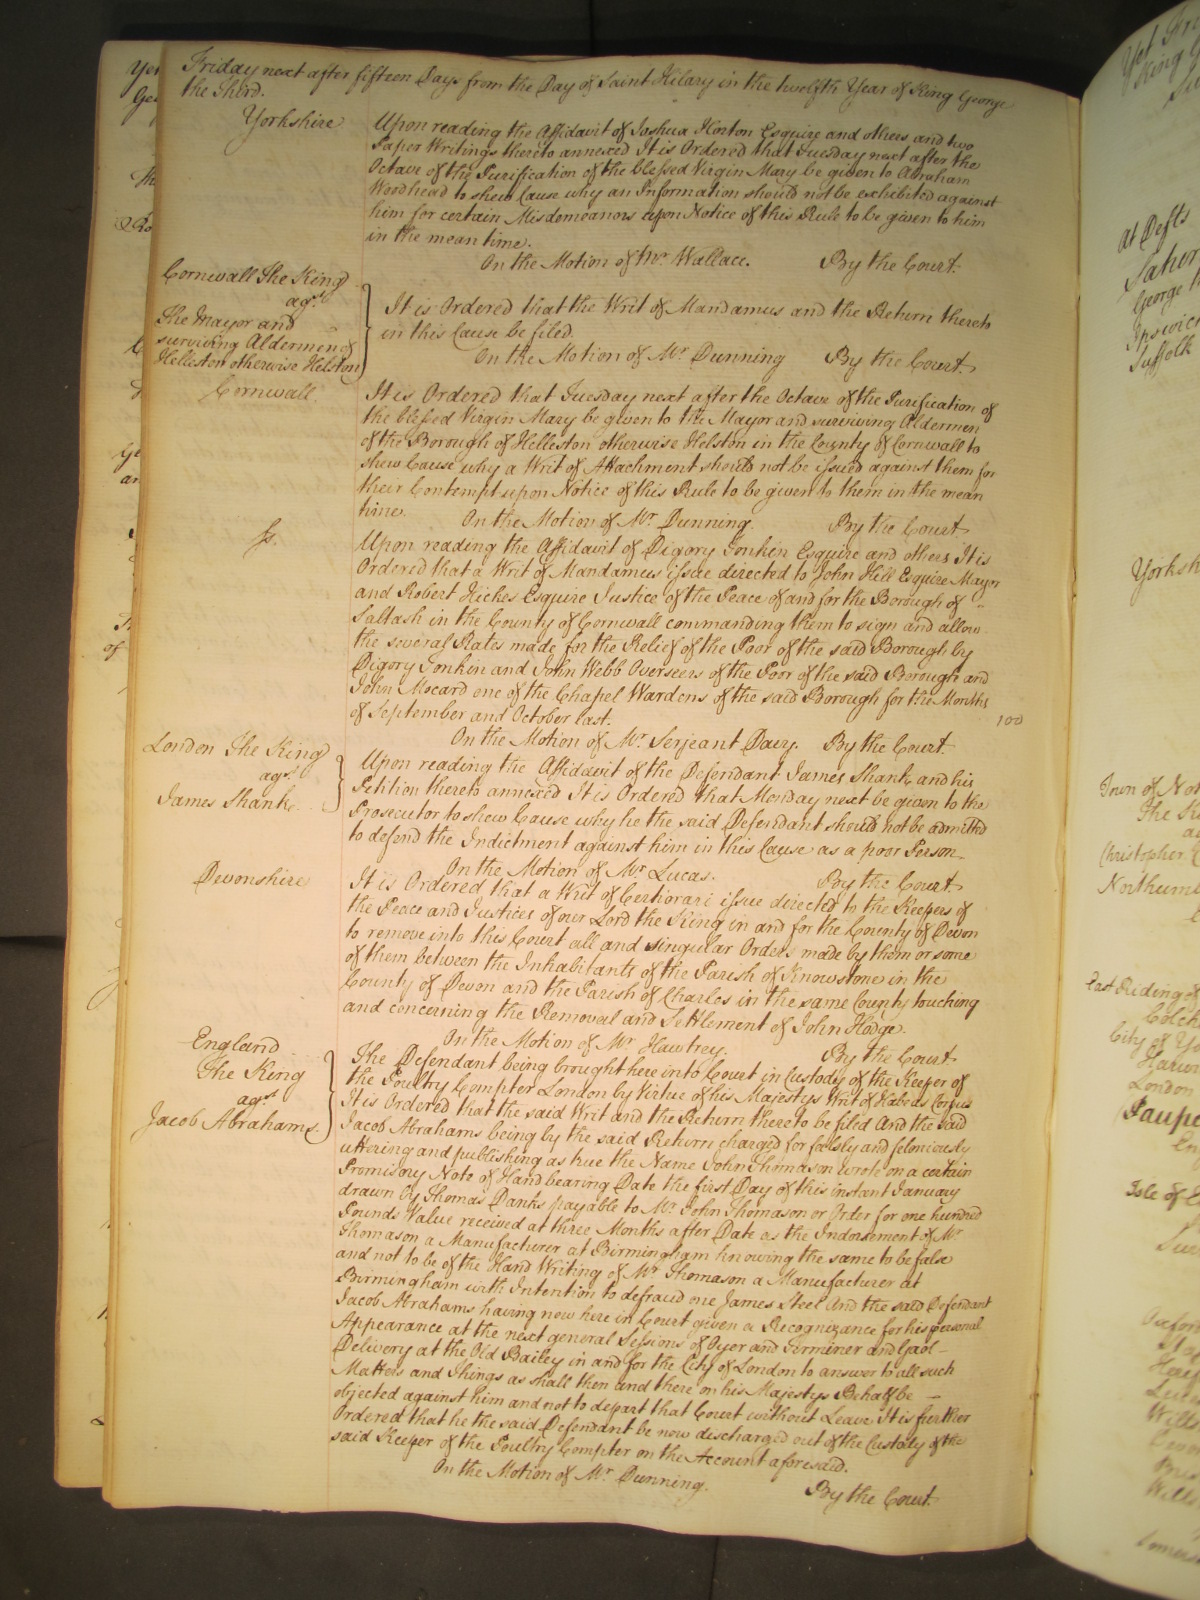 Friday next after fifteen Days from the Day of Saint Hilary in the twelfth Year of King George
the Third.
Yorkshire
Upon reading the Affidavit of Joshua Horton Esquire and others and two
Paper Writings thereto annexed It is Ordered that Tuesday next after the
Octave of the Purification of the blessed Virgin Mary be given to Abraham
Wordhead to shew Cause why an Information should not be exhibited against
him for certain Misdemeanors upon Notice of this Rule to be given to him
in the mean time.
On the Motion of Mr. Wallace. By the Court.
Cornwall The King
agst
The Mayor and
surviving Aldermen of
Helleston otherwise Helston
It is Ordered that the Writ of Mandamus and the Return thereto
in this Cause be filed
On the Motion of Mr Dunning By the Court
Cornwall.
It is Ordered that Tuesday next after the Octave of the Purification of
the blessed Virgin Mary be given to the Mayor and surviving Aldermen
of the Borough of Helleston otherwise Helston in the County of Cornwall to
shew Cause why a Writ of Attachment should not be issued against them for
their Contempt upon Notice of this Rule to be given to them in the mean
time. On the Motion of Mr Dunning. By the Court
Ss.
Upon reading the Affidavit of Digory Tonkin Esquire and others It is
Ordered that a Writ of Mandamus issue directed to John Hill Esquire Mayor
and Robert Hickes Esquire Justice of the Peace of and for the Borough of
Saltash in the County of Cornwall commanding them to sign and allow
the several Rates made for the Relief of the Poor of the said Borough by
Digory Tonkin and John Webb Overseers of the Poor of the said Borough and
John Mocard one of the Chapel Wardens of the said Borough for the Months
of September and October last.
100
On the Motion of Mr Serjeant Davy. By the Court
London The King
agst
James Shank
Upon reading the Affidavit of the Defendant James Shank and his
Petition thereto annexed It is Ordered that Monday next be given to the
Prosecutor to shew Cause why he the said Defendant should not be admitted
to defend the Indictment against him in this Cause as a poor Person
On the Motion of Mr Lucas. By the Court
Devonshire
It is Ordered that a Writ of Certiorari issue directed to the Keepers of
the Peace and Justices of our Lord the King in and for the County of Devon
to remove into this Court all and singular Orders made by them or some
of them between the Inhabitants of the Parish of Knowstone in the
County of Devon and the Parish of Charles in the same County touching
and concerning the Removal and Settlement of John Hodge.
On the Motion of Mr Hawtrey. By the Court
England
The King
agst
Jacob Abrahams
The Defendant being brought here into Court in Custody of the Keeper of
the Poultry Compter London by Virtue of his Majestys Writ of Habeas Corpus
It is Ordered that the said Writ and the Return thereto be filed And the said
Jacob Abrahams being by the said Return charged for falsly and feloniously
uttering and publishing as true the Name John Thomason wrote on a certain
Promisory Note of Hand bearing Date the first Day of this instant January
drawn by Thomas Danks payable to Mr John Thomason or Order for one hundred
Pounds Value received at three Months after Date as the Indorsement of Mr
Thomason a Manufacturer at Birmingham knowing the same to be false
and not to be of the Hand Writing of Mr Thomason a Manufacturer at
Birmingham with Intention to defraud one James Steel And the said Defendant
Jacob Abrahams having now here in Court given a Recognizance for his personal
Appearance at the next general Sessions of Oyer and Terminer and Gaol
Delivery at the Old Bailey in and for the City of London to answer to all such
Matters and Things as shall then and there on his Majestys Behalf be
objected against him and not to depart that Court without Leave It is further
Ordered that he the said Defendant be now discharged out of the Custody of the
said Keeper of the Poultry Compter on the Account aforesaid.
On the Motion of Mr Dunning.
By the Court
At Defts
George
Ipswich
Suffolk
Town of
Christopher
East Riding of
City of
London
Isle of